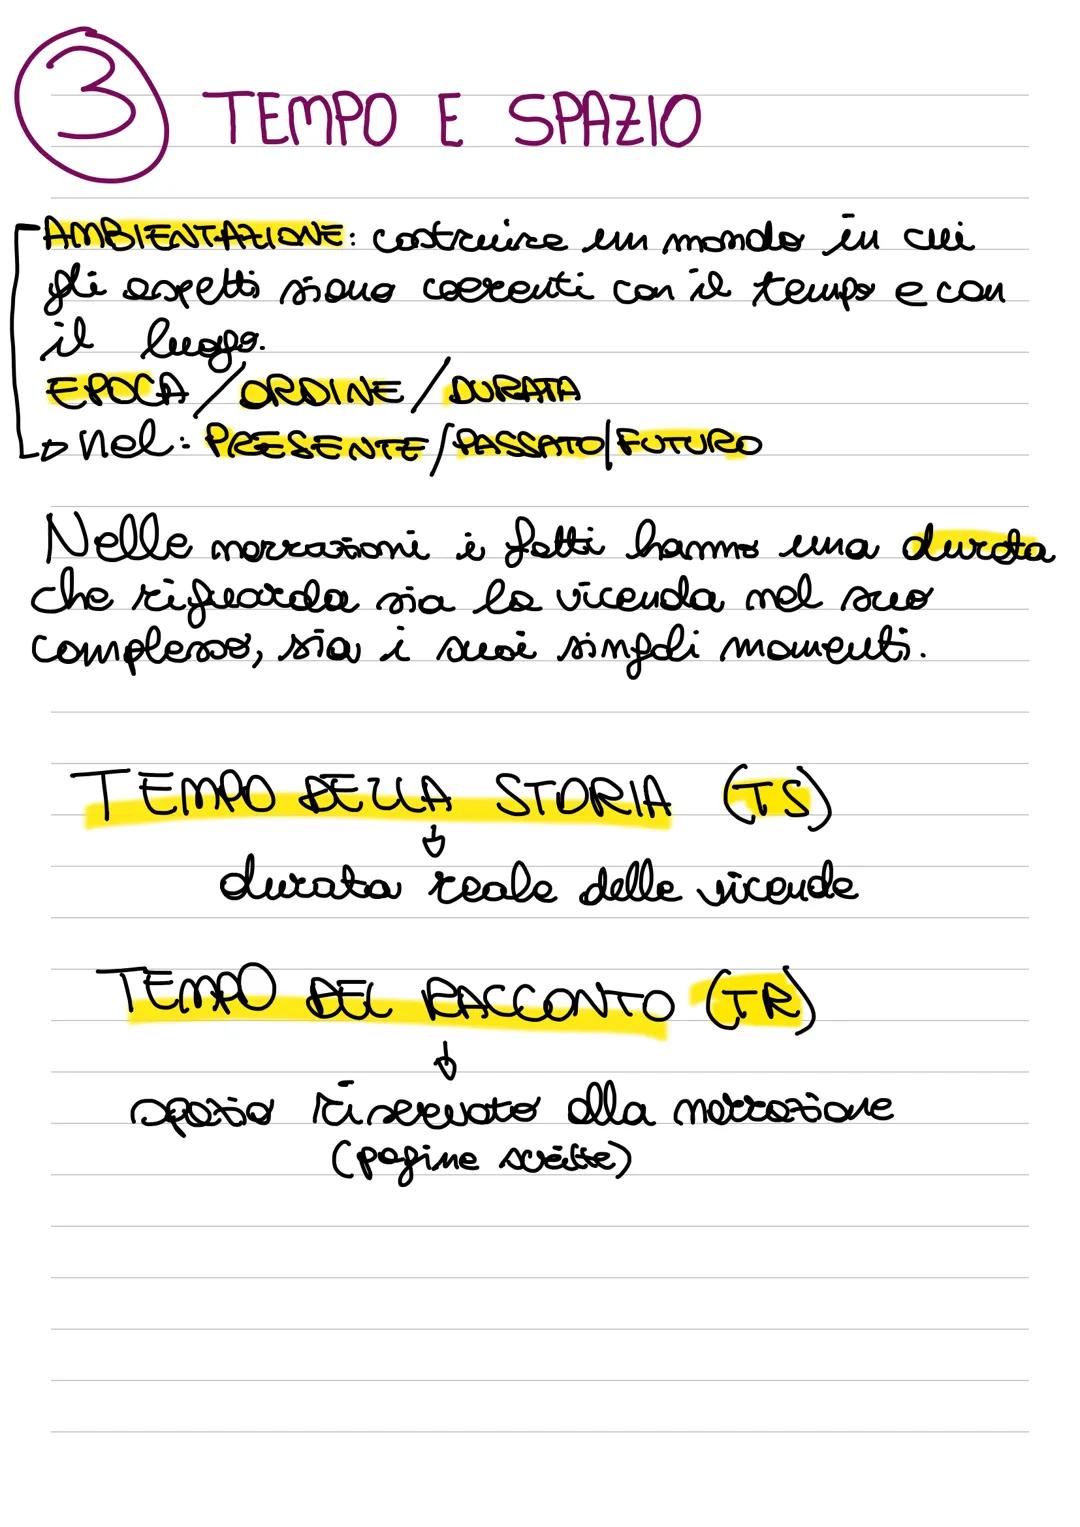 3 TEMPO E SPAZIO
AMBIENTAZIONE: costruire un mondo in cui
gli aspetti siano coerenti con il tempo e con
il luogo.
EPOCA / ORDINE / DURATA
→ nel: PRESENTE/PASSATO/FUTURO
Nelle narrazioni i fatti hanno una durata
che riguarda sia la vicenda nel suo
complesso, sia i suoi singoli momenti.
TEMPO DELLA STORIA (TS)
↓
durata reale delle vicende
TEMPO DEL RACCONTO (TR)
↓
spazio riservato alla narrazione
(pagine scritte)